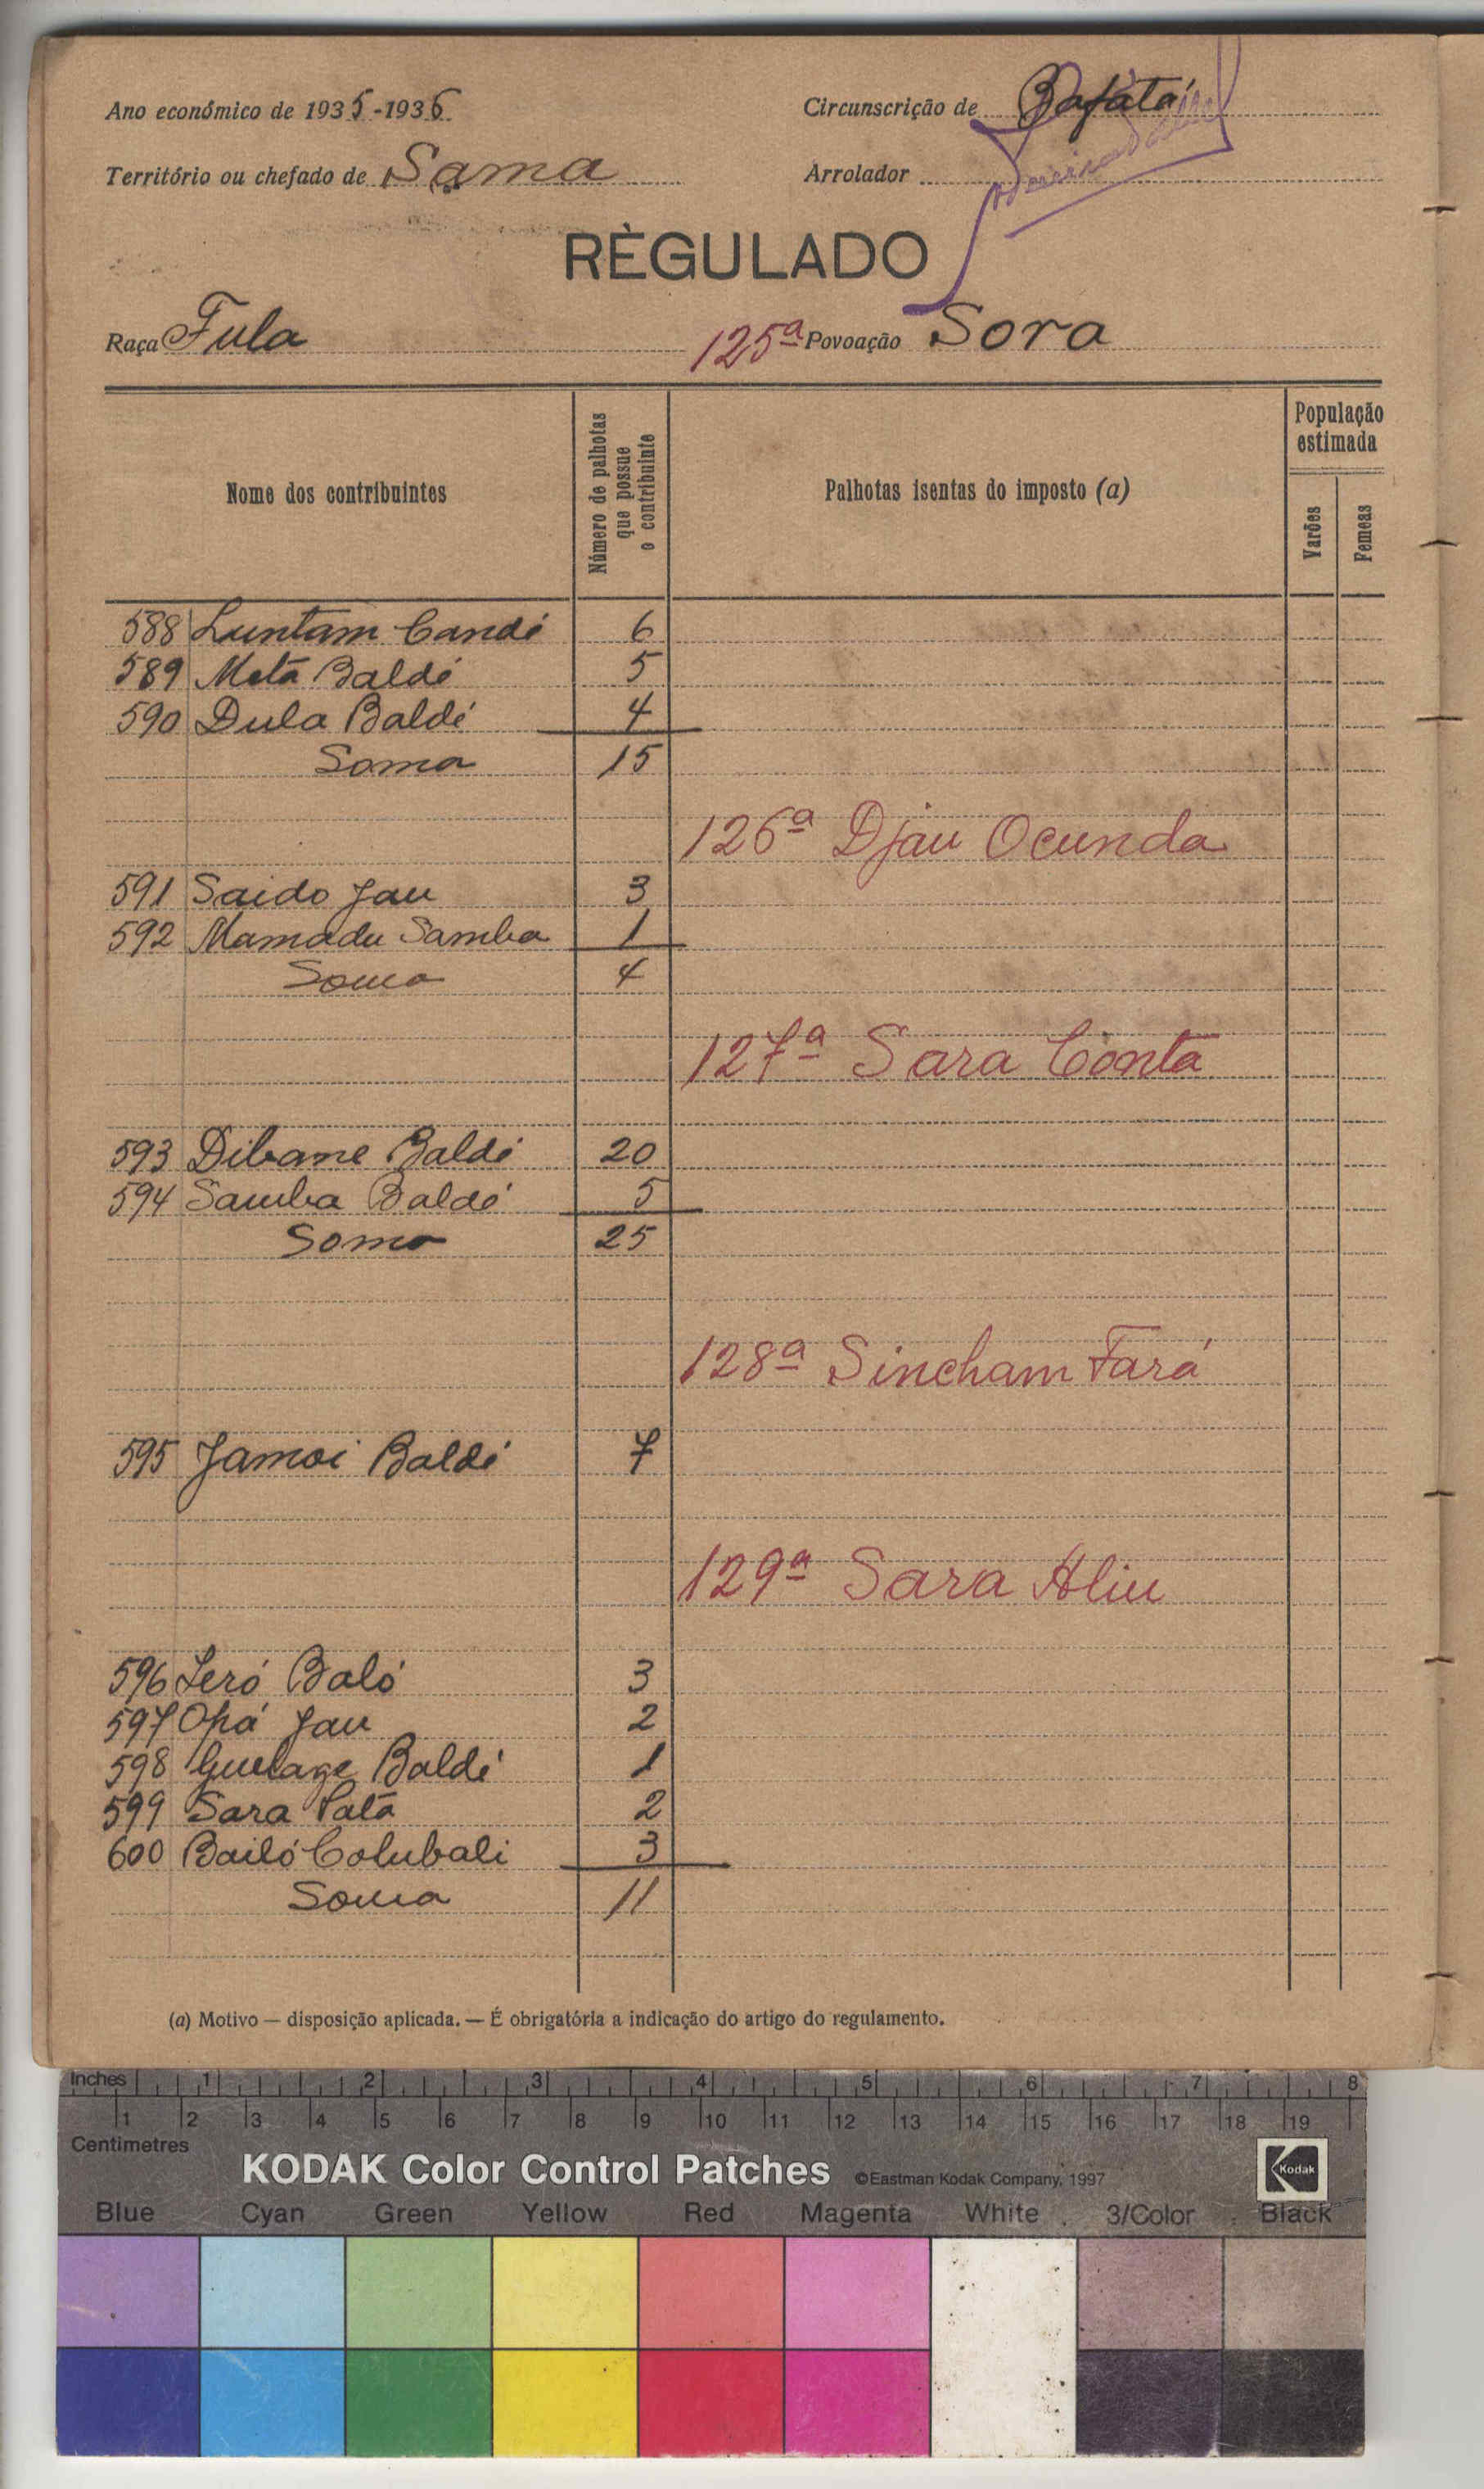 Ano económico de 1935-1936
Circunscrição de Bafatá
Território ou chefado de Sama
Arrolador
RÈGULADO
Raça Fula
125ª Povoação Sora
Nome dos contribuintes
Número de palhotas que possue o contribuinte
Palhotas isentas do imposto (a)
População estimada
Varões
Femeas
588 Luntam Candé 6
589 Metá Baldé 5
590 Dula Baldé 4
Soma 15
126ª Djau Ocunda
591 Saido Jau 3
592 Mamadu Samba 1
Soma 4
127ª Sara Contá
593 Dibame Baldé 20
594 Samba Baldé 5
Soma 25
128ª Sincham Fará
595 Jamoi Baldé 7
129ª Sara Aliu
596 Leró Baló 3
597 Opá Jau 2
598 Guelage Baldé 1
599 Sara Patá 2
600 Bailó Colubali 3
Soma 11
(a) Motivo — disposição aplicada. — É obrigatória a indicação do artigo do regulamento.
Inches 1 2 3 4 5 6 7 8
1 2 3 4 5 6 7 8 9 10 11 12 13 14 15 16 17 18 19
Centimetres
KODAK Color Control Patches ©Eastman Kodak Company, 1997 Kodak
Blue Cyan Green Yellow Red Magenta White 3/Color Black